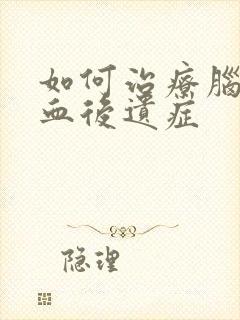 如何治療腦
血後遺症
隐理